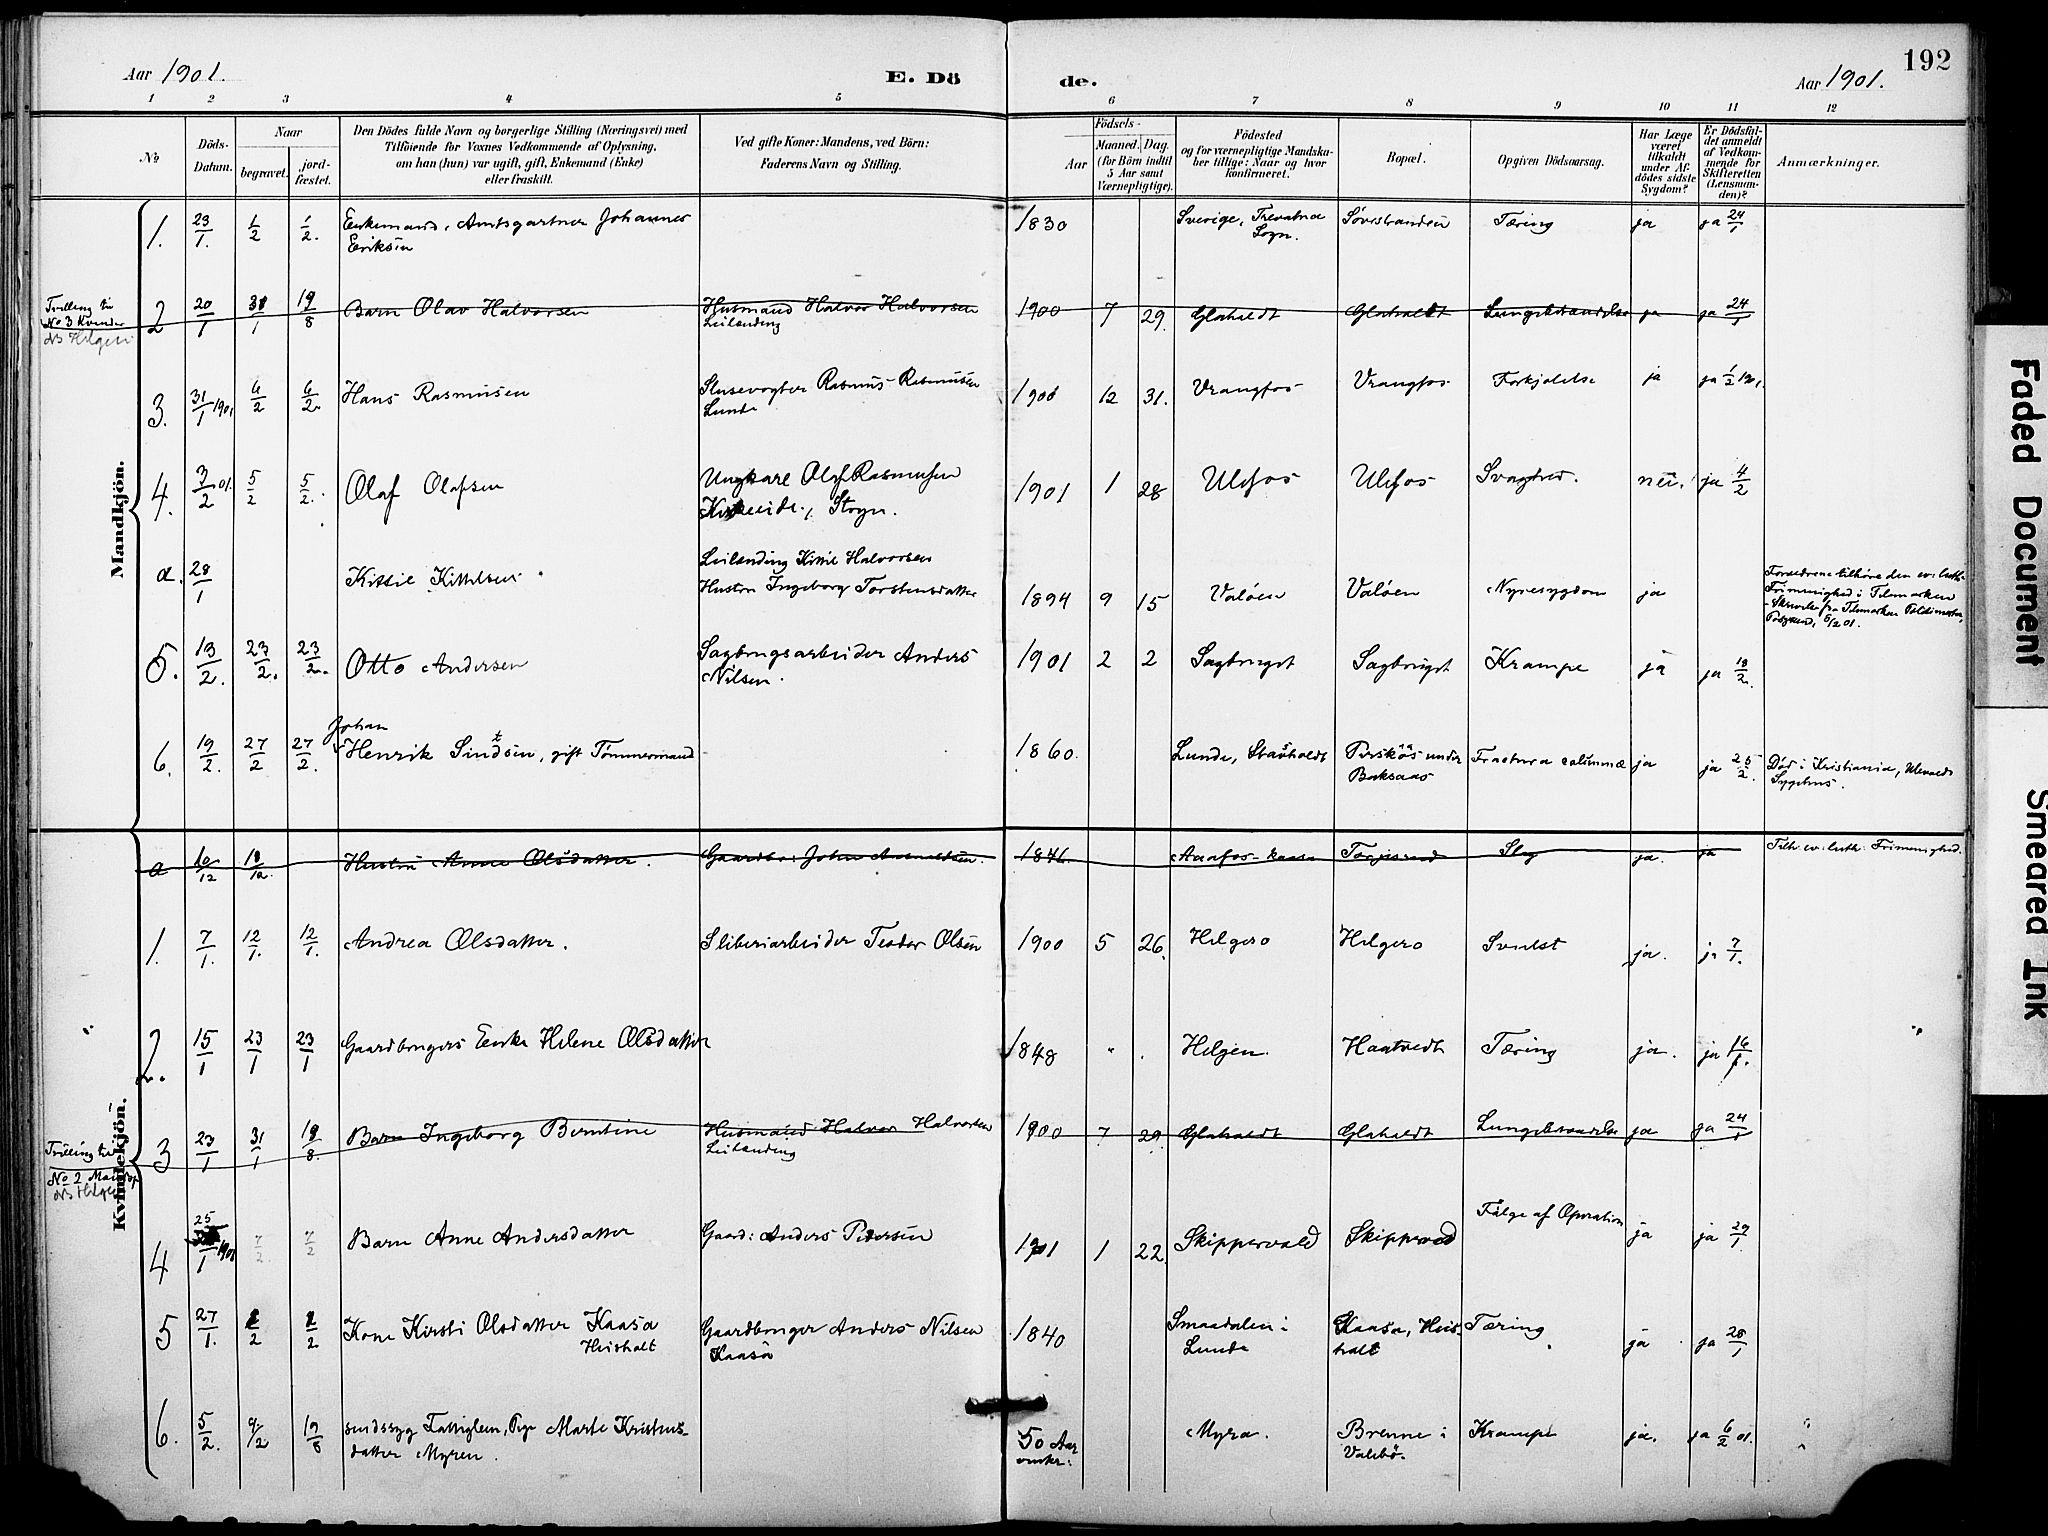 192
Aar 1901.
E. Dö
de.
Aar 1901.
1 2 3 4 5 6 7 8 9 10 11 12
No
Döds-
Datum.
Naar
begravet.
jord-
fæstet.
Den Dödes fulde Navn og borgerlige Stilling (Næringsvei) med
Tilföiende for Voxnes Vedkommende af Oplysning,
om han (hun) var ugift, gift, Enkemand (Enke)
eller fraskilt.
Ved gifte Koner: Mandens, ved Börn:
Faderens Navn og Stilling.
Födsels-
Aar
Maaned.
Dag.
(for Börn indtil
5 Aar samt
Værnepligtige).
Födested
og for værnepligtige Mandska-
ber tillige: Naar og hvor
konfirmeret.
Bopæl.
Opgiven Dödsaarsag.
Har Læge
været
tilkaldt
under Af-
dödes sidste
Sygdom?
Er Dödsfal-
det anmeldt
af Vedkom-
mende for
Skifteretten
(Lensman-
den)?
Anmærkninger.
Mandkjön.
1. 23/1. 1/2 1/2. Enkemand, Amtsgartner Johannes 1830 Sverige, Sövestranden Tæring ja ja 24/1
Eriksen Sogn.
Tvilling til
No 3 Kvinder
2 20/1 31/1 19/8 Barn Olav Halvorsen Husmand Halvor Halvorsen 1900 7 29. Glaholdt Glaholdt Lungebetændelse ja ja 24/1
Leilending
3. 31/1 1901 6/2 6/2. Hans Rasmusen Slusevogter Rasmus Rasmusen 1900 12 31. Vrangfos Vrangfos Forkjølelse ja ja 1/2 1901
Lunde
4. 3/2 01. 5/2 5/2. Olaf Olafsen Ungkare Olaf Rasmusen 1901 1 28 Ulefos Ulefos Svaghed. nei. ja 4/2
a. 28/1 Kittil Kittelsen Leilending Kittil Halvorsen
Hustru Ingeborg Torstensdatter 1894 9 15 Valöen Valöen Nyresygdom ja
Forældrene tilhöre den ev: luth-
Frimenighed i Telemarken
5/2 01.
5. 13/2. 23/2. 23/2. Otto Andersen Sagbrugsarbeider Anders 1901 2 2 Sagbruget Sagbruget Krampe ja ja 18/2.
Nilsen.
Johan
6. 19/2. 27/2 27/2. Henrik Sindsen, gift Tømmermand 1860. Lunde, under Fractura columnæ ja ja 25/2. Död i Kristiania, Ulevaals
Baksaas Sygehus.
Kvindekjön.
a 10/12 18/12 Hustru Anne Olsdatter. Gaardbr: John 1846. Aaafos-kaasa Slag ja. ja Tilh. ev: luth: Frimenighed.
1. 7/1. 12/1. 12/1. Andrea Olsdatter. Sliberiarbeider Teodor Olsen 1900 5 26. Helgero Helgero Svulst ja. ja 7/1.
2. 15/1 23/1 23/1 Gaardbrugers Enke Helene Olsdatter 1848 Helgen. Haatvedt Tæring ja. ja 16/1.
Tvilling til
No 2 Mandkj
3 23/1 31/1 19/8. Barn Ingeborg Berntine Husmand Halvor Halvorsen 1900 7 29. Glaholdt Glaholdt Lungebetændelse ja ja 24/1
Leilending
4 25/1 1901 7/2. 7/2 Barn Anne Andersdatter Gaard: Anders Petersen 1901 1 22. Skippervold Skippervold Fölge af Operation ja ja 29/1.
5 27/1. 1/2 1/2. Kone Kirsti Olsdatter Kaasa Gaardbruger Anders Nilsen 1840 Smaadalen i Kaasa, Heis- Tæring ja ja 28/1
Heisholt Kaasa Lunde holt
6. 5/2. 9/2 19/8 sindssyg Fattiglem, Pige Marte Kristens- 50 Aar Myra. Brenne i Krampe ja. ja 6/2 01.
datter Myren. omkr: Valebö.
Faded Document
Smeared Ink